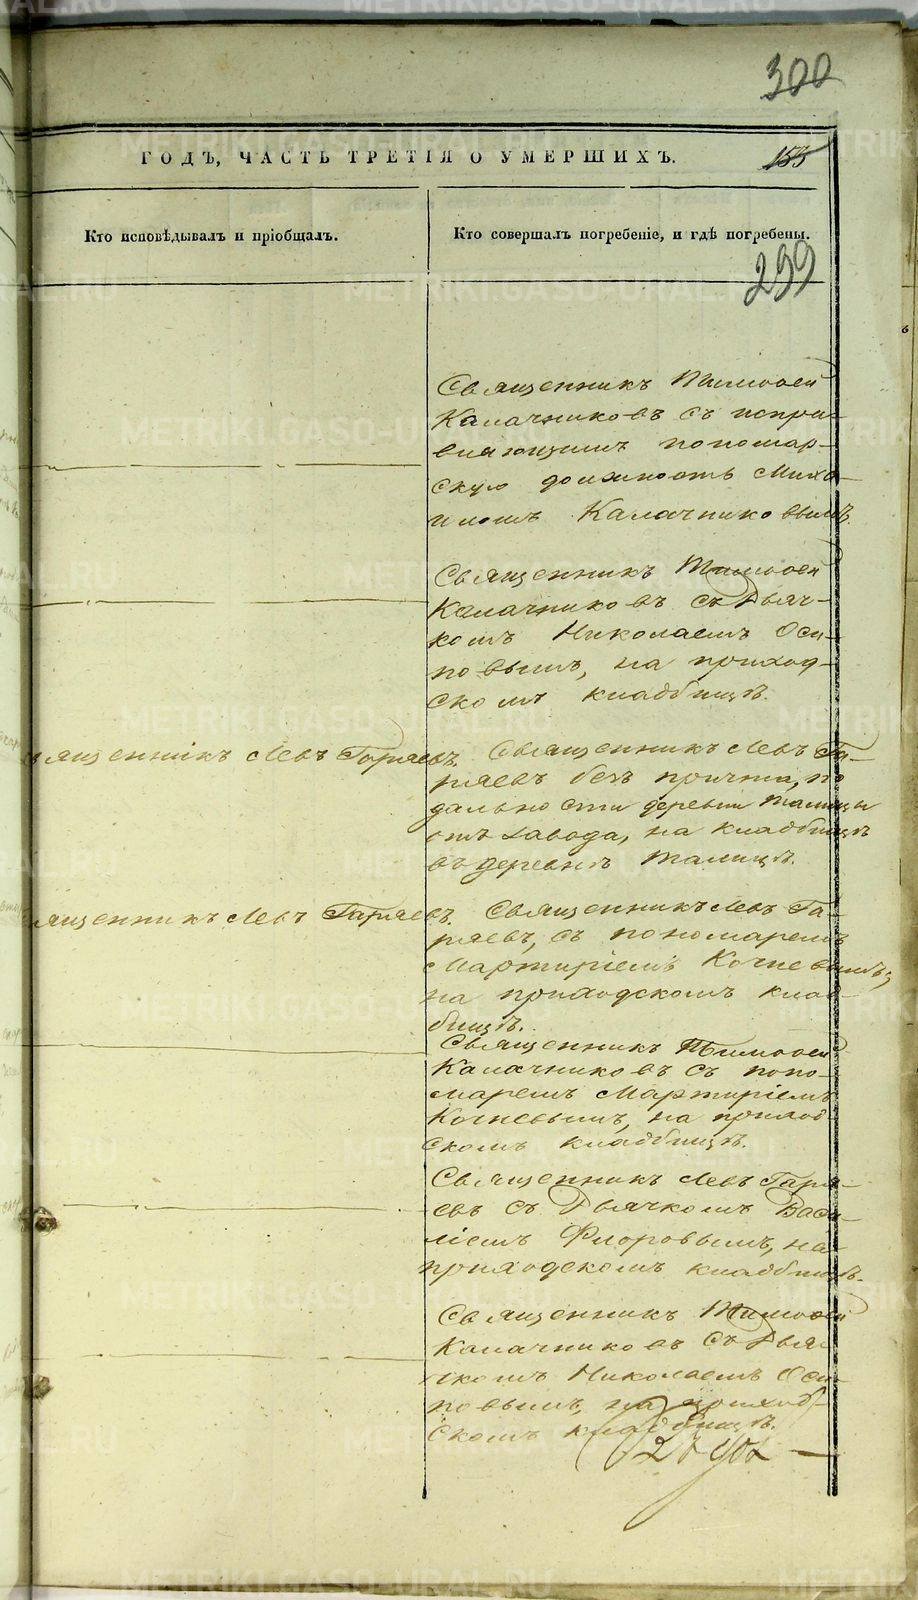 300
ГОДЪ, ЧАСТЬ ТРЕТІЯ О УМЕРШИХЪ.
155
Кто исповѣдывалъ и пріобщалъ.
Кто совершалъ погребеніе, и гдѣ погребены.
299
Священникъ Тимоѳей
Калачниковъ съ испра-
вляющимъ пономар-
скую должность Миха-
иломъ Калачниковымъ.
Священникъ Тимоѳей
Калачниковъ съ Дьяч-
комъ Николаемъ Оси-
повымъ, на приход-
скомъ кладбищѣ.
Священникъ Левъ Гаряевъ.
Священникъ Левъ Га-
ряевъ безъ причта, по
дальности деревни Талицы
отъ завода, на кладбищѣ
въ деревнѣ Талицѣ.
Священникъ Левъ Гаряевъ.
Священникъ Левъ Га-
ряевъ, съ пономаремъ
Мартиріемъ Кочневымъ,
на приходскомъ клад-
бищѣ.
Священникъ Тимоѳей
Калачниковъ съ поно-
маремъ Мартиріемъ
Кочневымъ, на приход-
скомъ кладбищѣ.
Священникъ Левъ Гаря-
евъ съ Дьячкомъ Васи-
ліемъ Флоровымъ, на
приходскомъ кладбищѣ.
Священникъ Тимоѳей
Калачниковъ съ Дьяч-
комъ Николаемъ Оси-
повымъ, на приход-
скомъ кладбищѣ.
METRIKI.GASO-URAL.RU